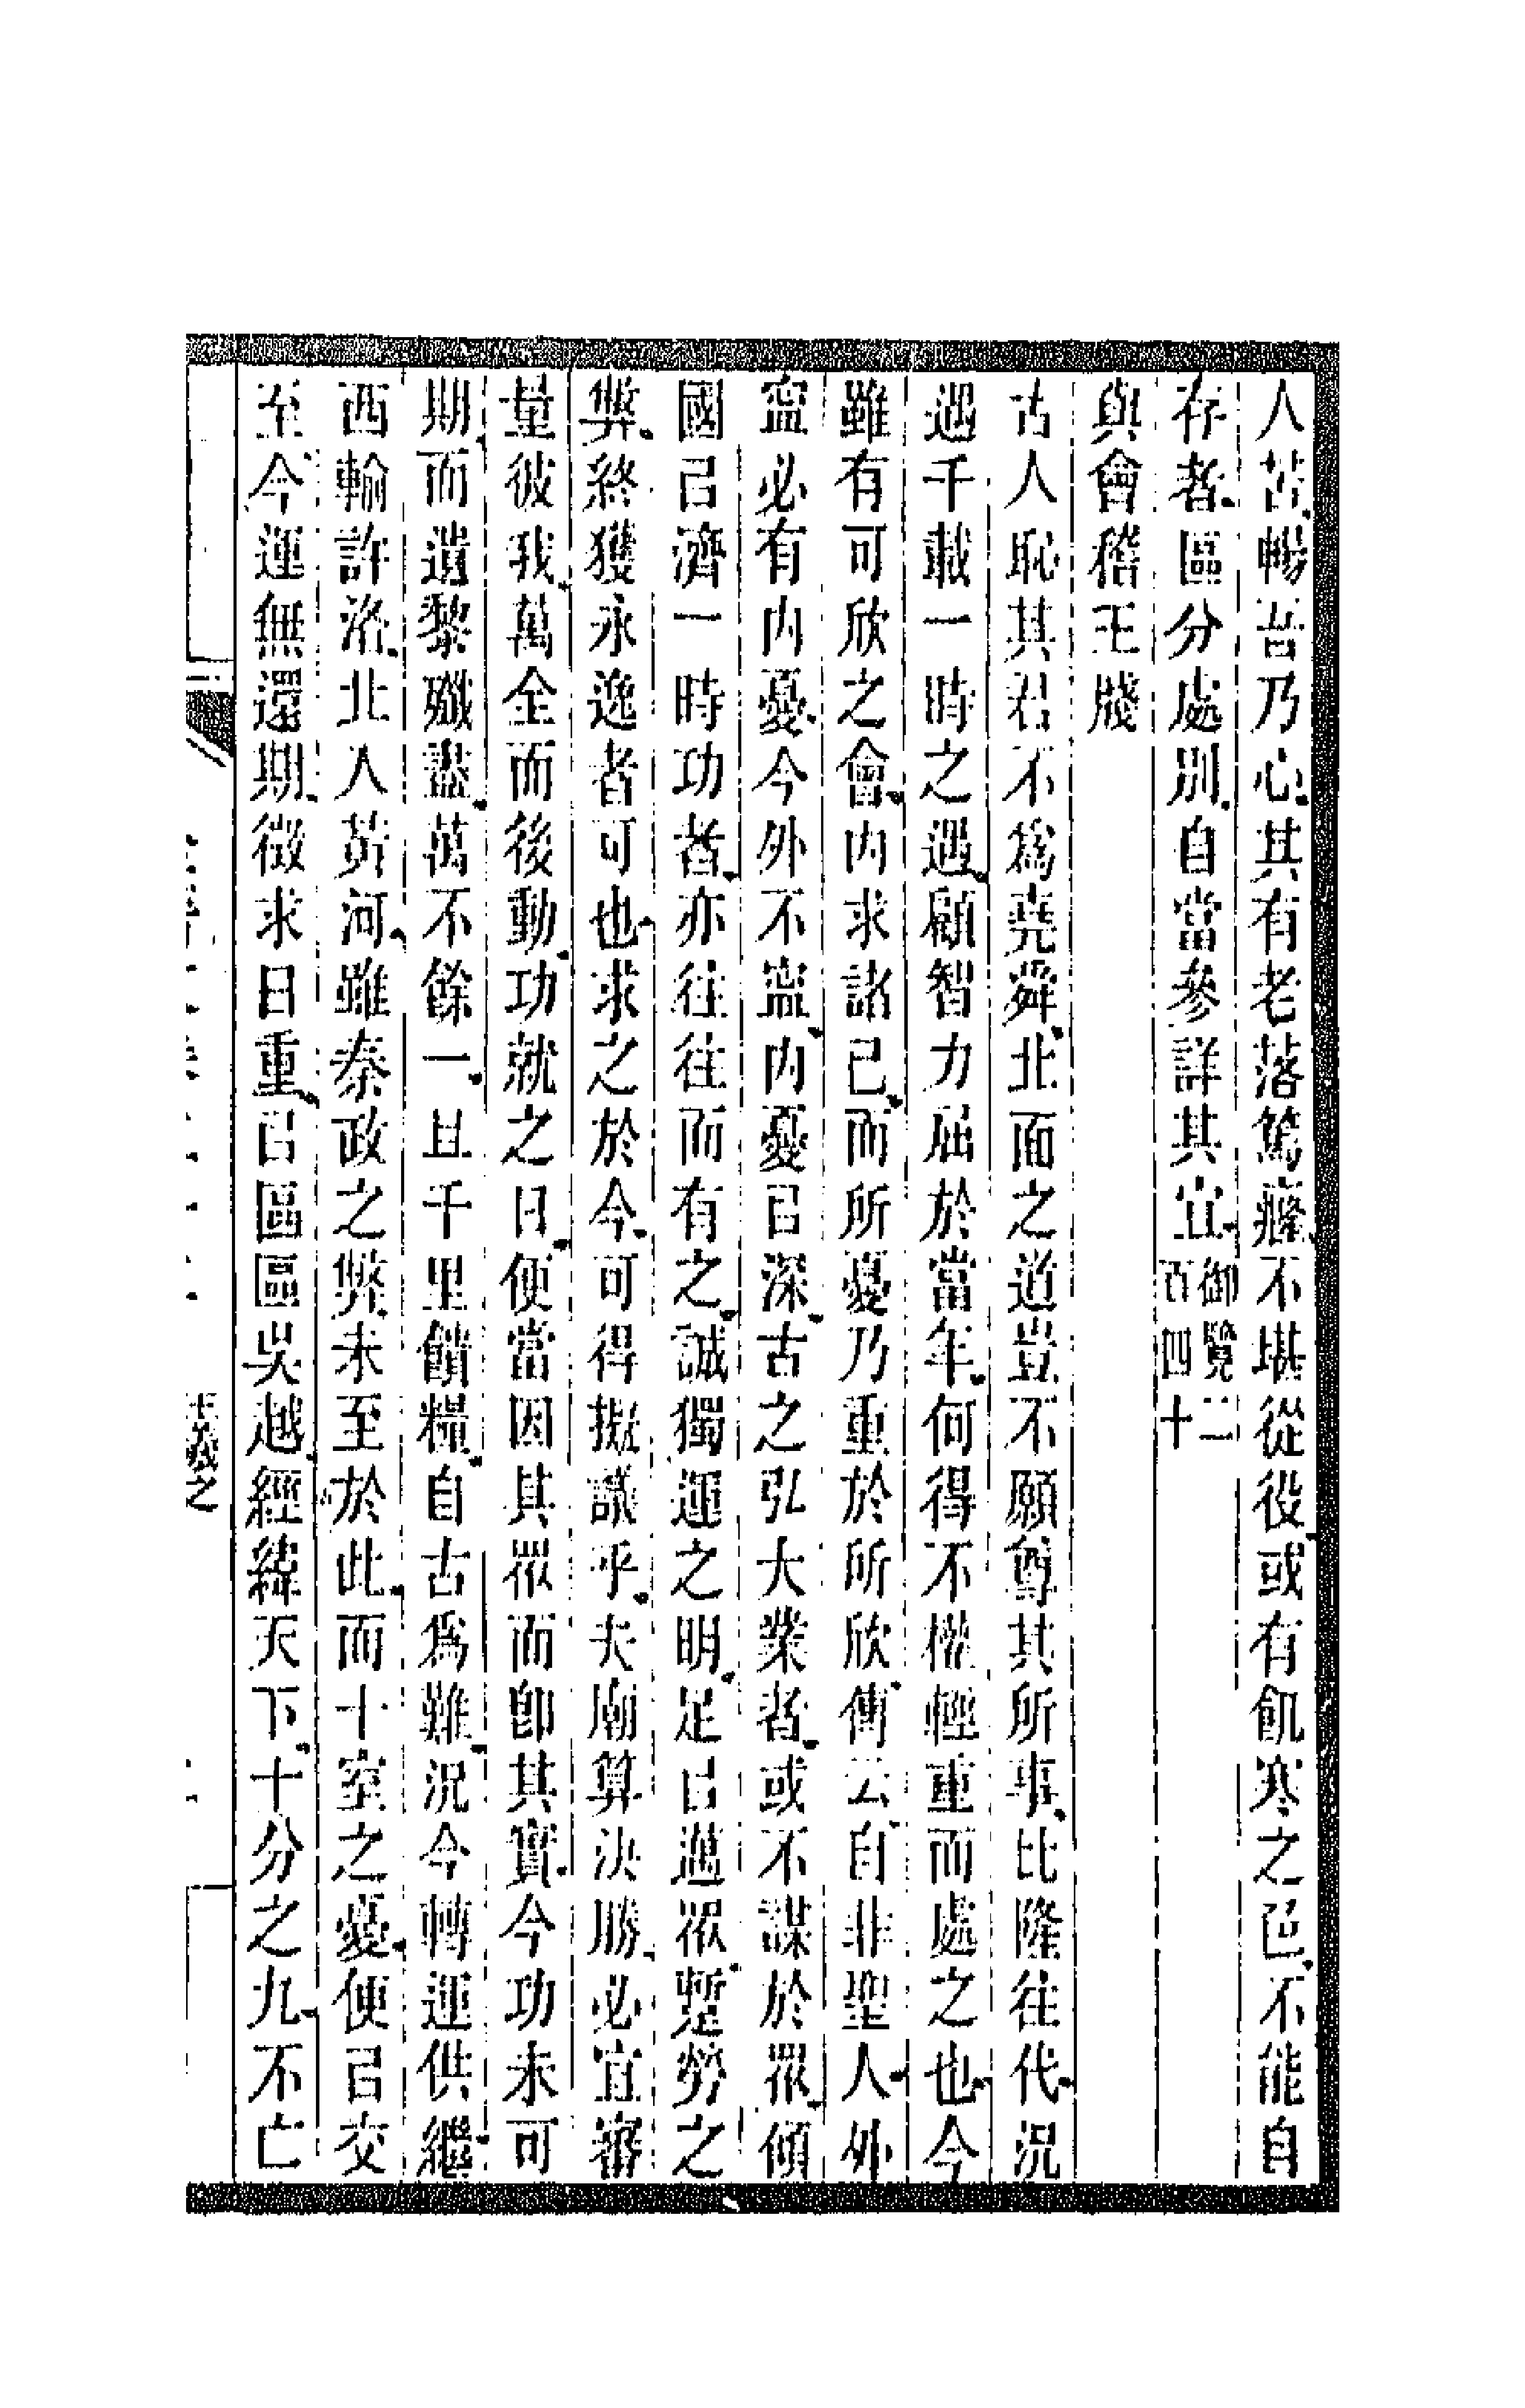 人苦暢吾乃心其有老落篤癃不堪從役或有飢寒之色不能自
存者區分處別自當參詳其宜御覽二百四十
與會稽王牋
古人恥其君不為堯舜北面之道豈不願尊其所事比隆往代況
遇千載一時之遇顧智力屈於當年何得不權輕重而處之也今
雖有可欣之會內求諸己而所憂乃重於所欣傳云自非聖人外
寍必有內憂今外不寍內憂㠯深古之弘大業者或不謀於眾傾
國㠯濟一時功者亦往往而有之誠獨運之明足㠯邁眾蹔勞之
弊終獲永逸者可也求之於今可得擬議乎夫廟算決勝必宜審
量彼我萬全而後動功就之日便當因其眾而卽其實今功未可
期而遺黎殲盡萬不餘一且千里饋糧自古為難況今轉運供繼
西輸許洛北入黃河雖秦政之弊未至於此而十室之憂便㠯交
至今運無還期徵求日重㠯區區吳越經緯天下十分之九不亡
王羲之